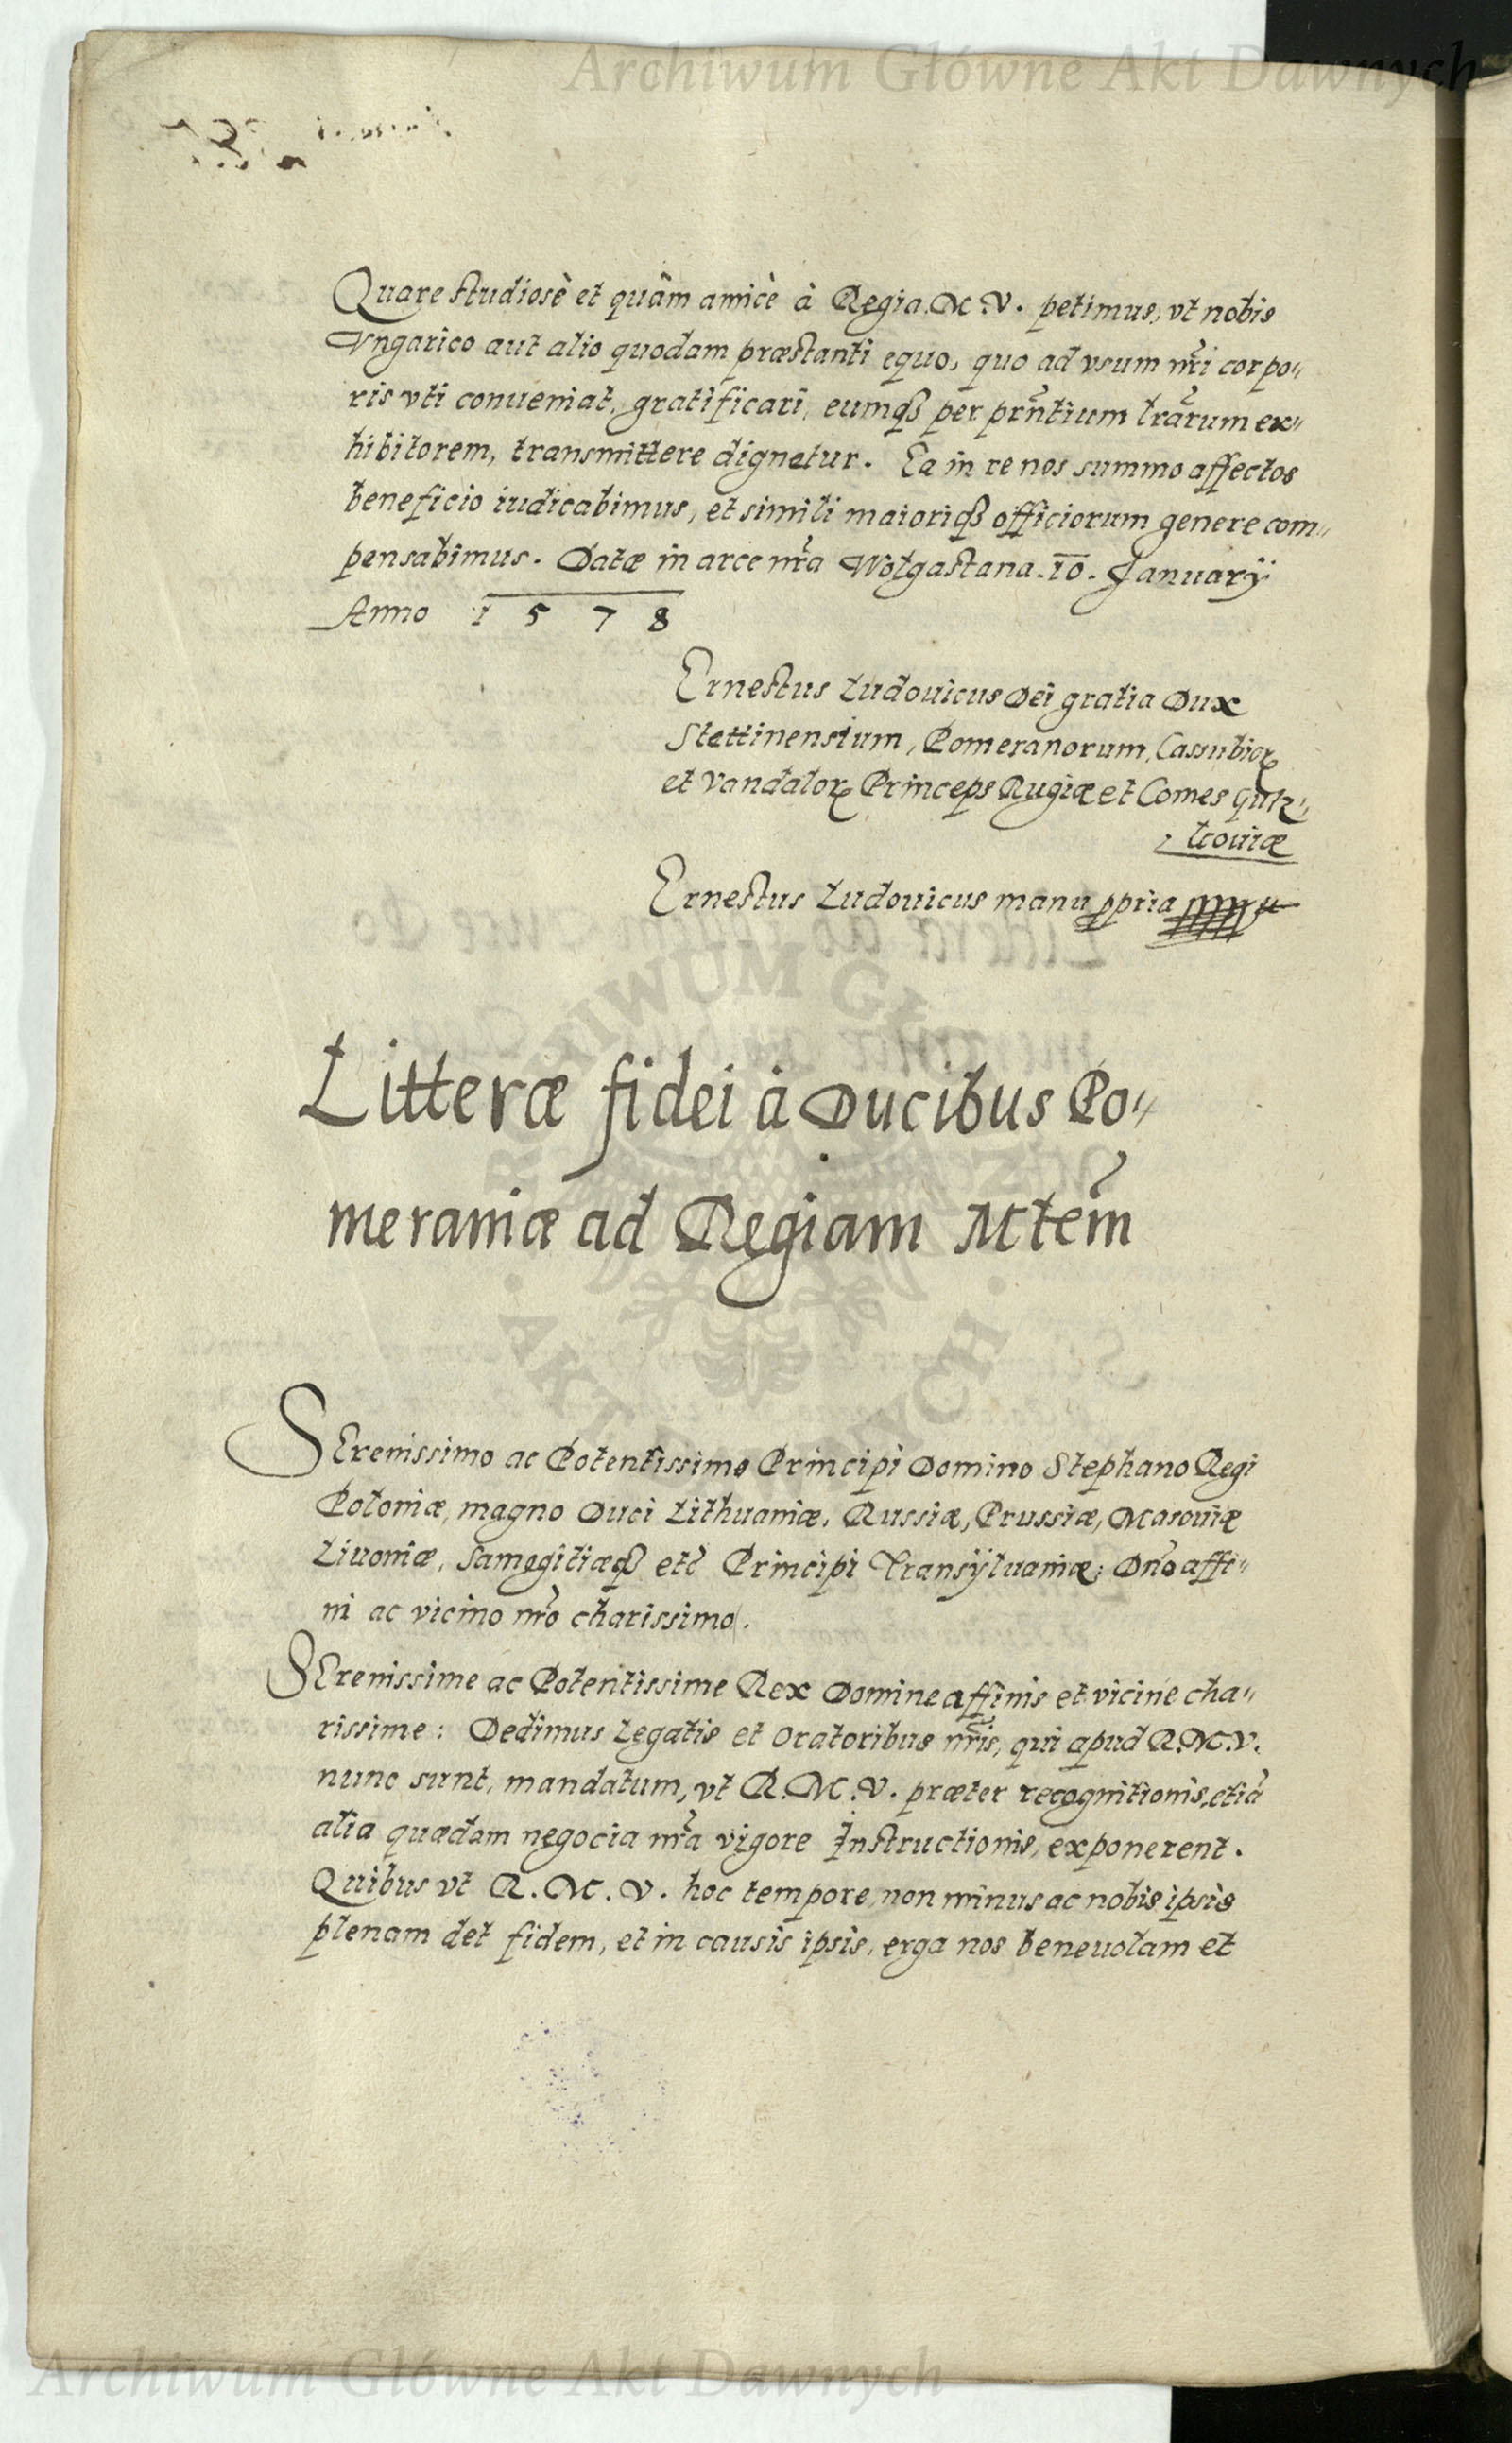 Archiwum Główne Akt Dawnych
Quare studiosè et quâm amicè à Regia. M. V. petimus, vt nobis
Vngarico aut alio quodam præstanti equo, quo ad vsum nr̃i corpo„
ris vti conueniat, gratificari, eumqꝫ per prñtium lrãrum ex„
hibitorem, transmittere dignetur. Ea in re nos summo affectos
beneficio iudicabimus, et simili maioriqꝫ officiorum genere com„
pensabimus. Datæ in arce nr̃a Wolgastana. 10. January
Anno 1 5 7 8
Ernestus Ludouicus Dei gratia Dux
Stettinensium, Pomeranorum, Cassubioꝝ
et Vandaloꝝ Princeps Rugiæ et Comes Gutz„
„ couiæ
Ernestus Ludouicus manu ꝓpria
Litteræ fidei à Ducibus Po„
meraniæ ad Regiam Mtem̃
SErenissimo ac Potentissimo Principi Domino Stephano Regi
Poloniæ, magno Duci Lithuaniæ, Russiæ, Prussiæ, Masouiæ
Liuoniæ, Samogitiæqꝫ etc̃ Principi Transÿluaniæ: Dño affi„
ni ac vicino nr̃o charissimo.
SErenissime ac Potentissime Rex Domine affinis et vicine cha„
rissime: Dedimus Legatis et Oratoribus nr̃is, qui apud R.M.V.
nunc sunt, mandatum, vt R.M.V. præter recognitionis, etiã
alia quædam negocia nr̃a vigore Instructionis, exponerent.
Quibus vt R. M. V. hoc tempore, non minus ac nobis ipsis
plenam det fidem, et in causis ipsis, erga nos beneuolam et
Archiwum Główne Akt Dawnych